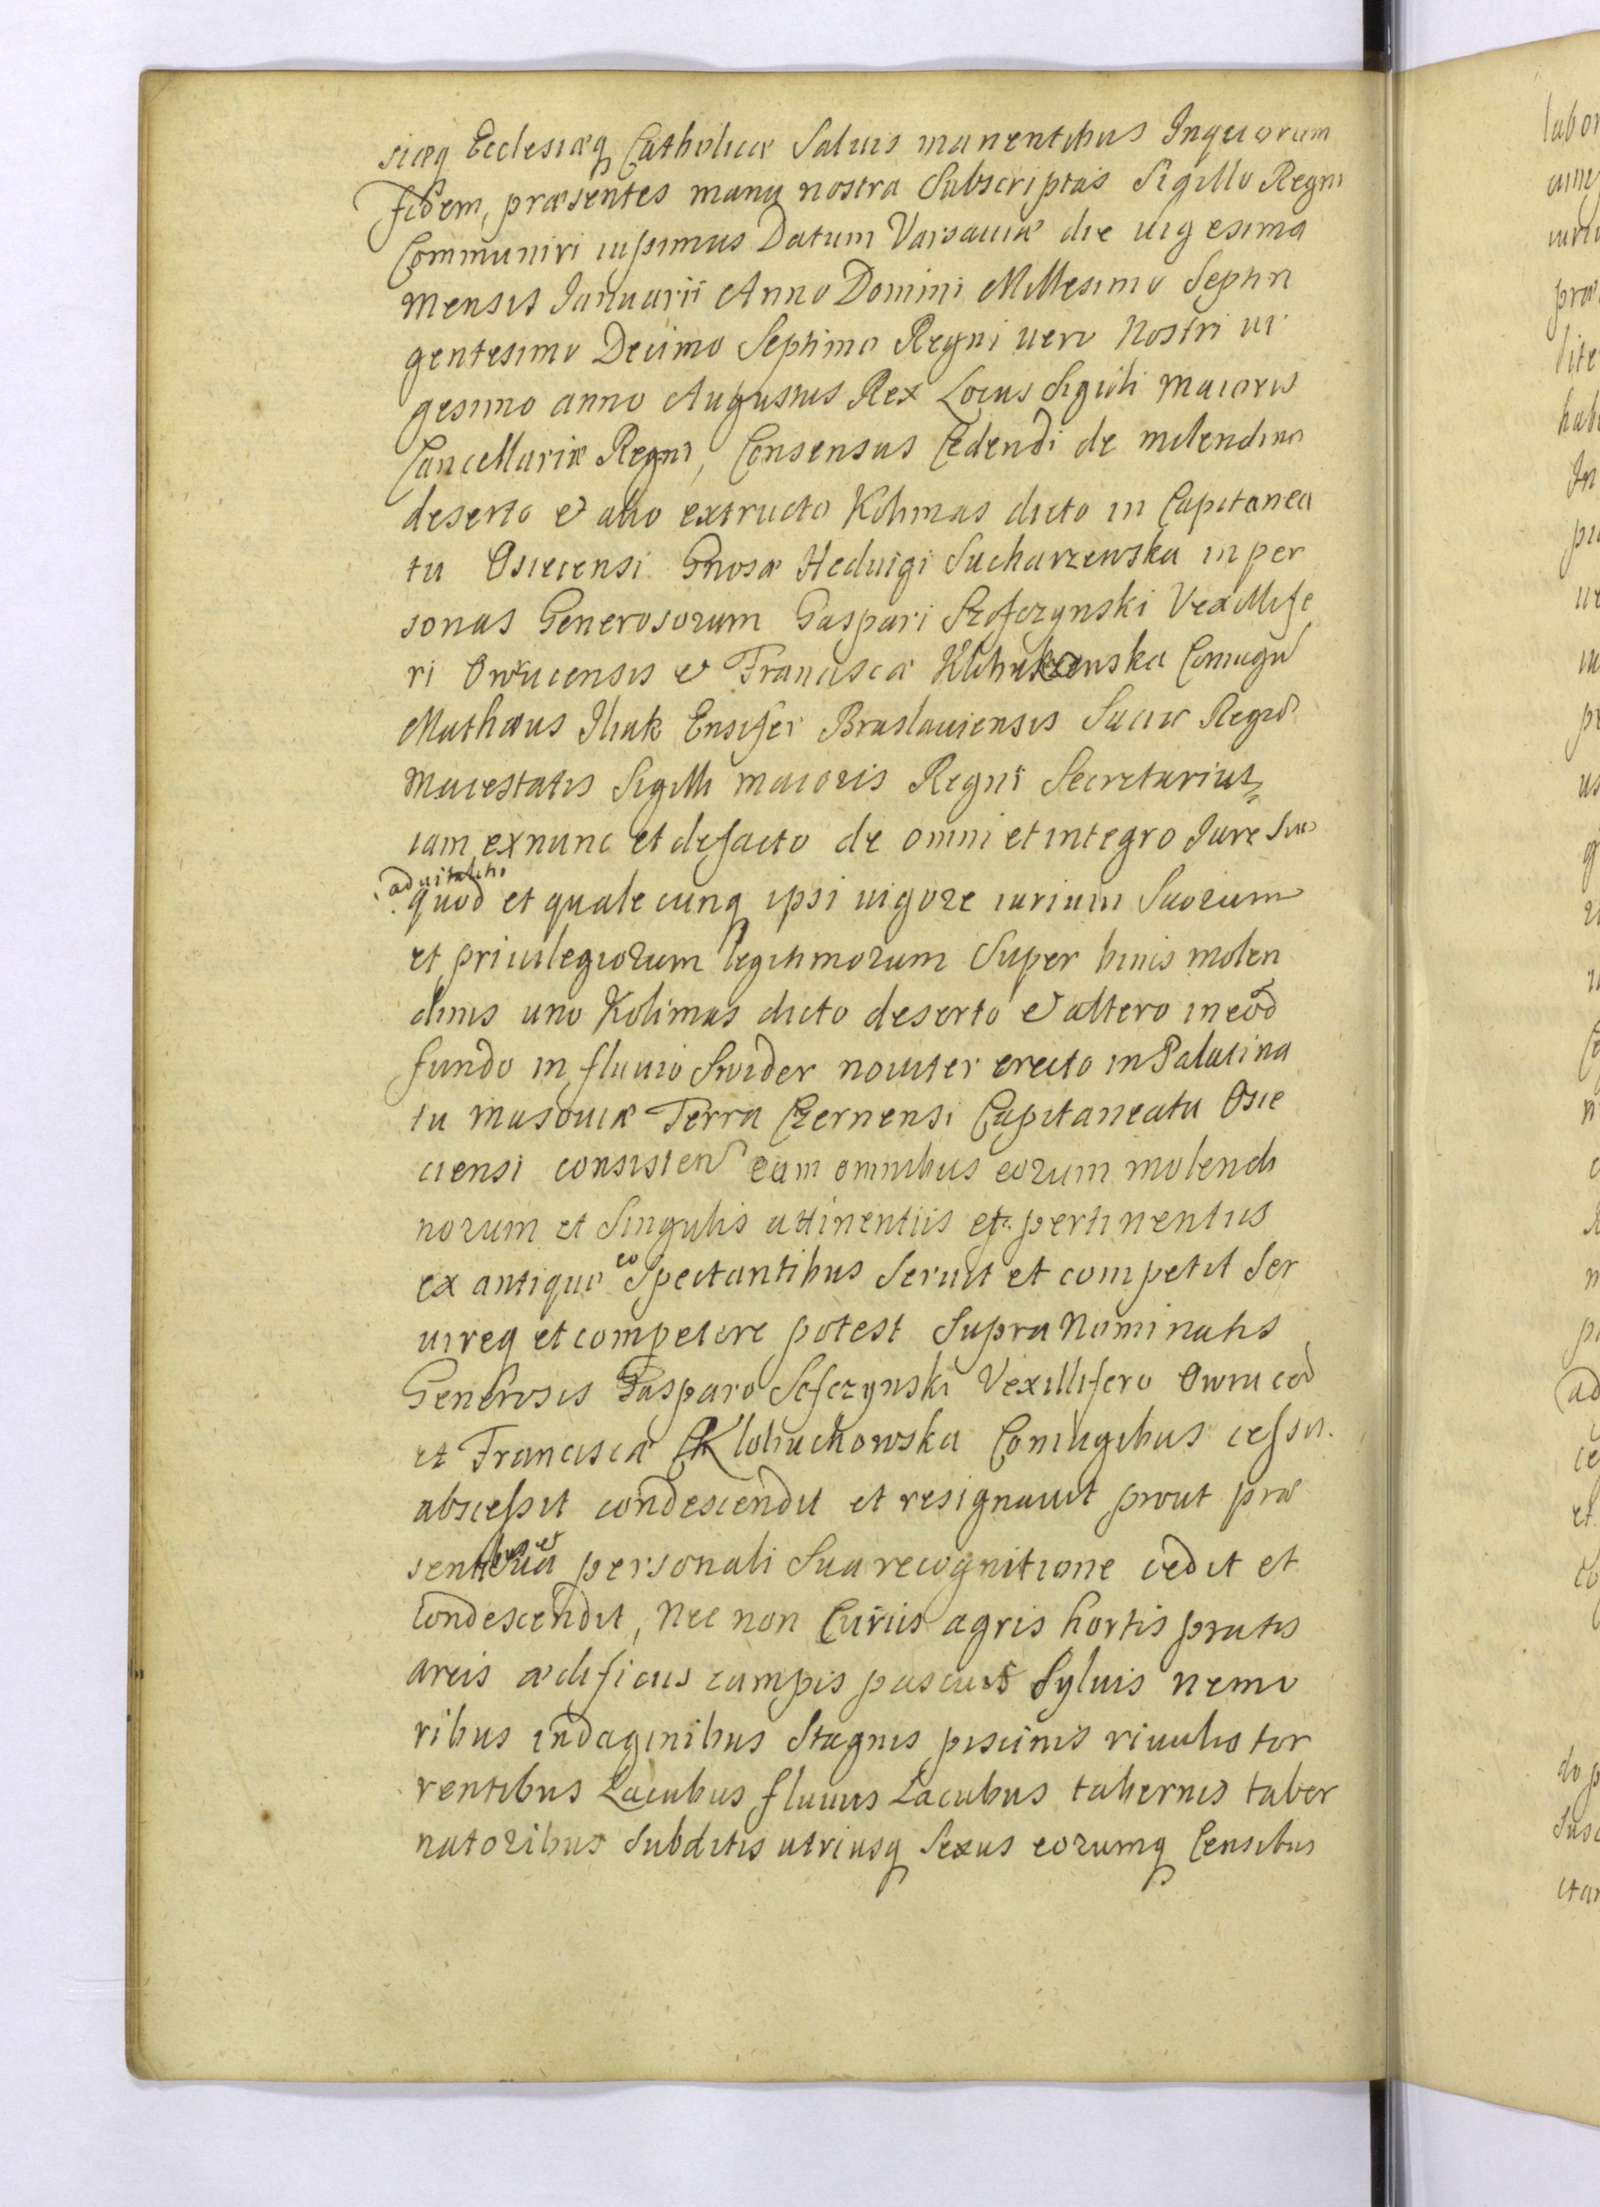 sicæq Ecclesiæq Catholicæ Saluis manentibus Inquorum
fidem, præsentes manu nostra Subscriptas Sigillo Regni
Communiri iussimus Datum Varsauiæ die uigesima
mensis Januarii Anno Domini Millesimo Septin
gentesimo Decimo Septimo Regni uero Nostri ui
gesimo anno Augustus Rex Locus Sigilli maioris
Cancellariæ Regni, Consensus Cedendi de molendino
deserto et alio extructo Kolimas dicto in Capitanea
tu Osiecensi Gnosæ Heduigi Sucharzewska in per
sonas Generosorum Gaspari Szofczynski Vexillife
ri Owrucensis et Francisca Coniugu
Mathæus Iliak Ensifer Braslauiensis Sacræ Regiæ
Maiestatis Sigilli maioris Regni Secretarius
iam exnunc et defacto de omni et integro Jure Suo
aduitalitio
quod et quale cunq ipsi uigore iurium Suorum
et priuilegiorum legitimorum Super binis molen
dinis uno Kolimas dicto deserto et altero in eod
fundo in fluuio Swider nouiter erecto in Palatina
tu Masouiæ Terra Czernensi Capitaneatu Osie
ciensi consisten eum omnibus eorum molendi
norum et Singulis attinentiis et pertinentiis
ex antiquo eo Spectantibus Seruit et competit Ser
uireq et competere potest Supra Nominatis
Generosis Gasparo Sefczynski Vexillifero Owruced
et Francisca Klobuchowska Coniugibus cessit
abscessit condescendit et resignauit prout præ
sentibus et sua personali Sua recognitione cedit et
Condescendit, Nec non Curiis agris hortis pratis
areis ædificiis campis pascuis Syluis nemo
ribus indaginibus Stagnis piscinis riuulis tor
rentibus Lacubus fluuiis Lacubus tabernis taber
natoribus Subditis utriusq Sexus eorumq Censibus